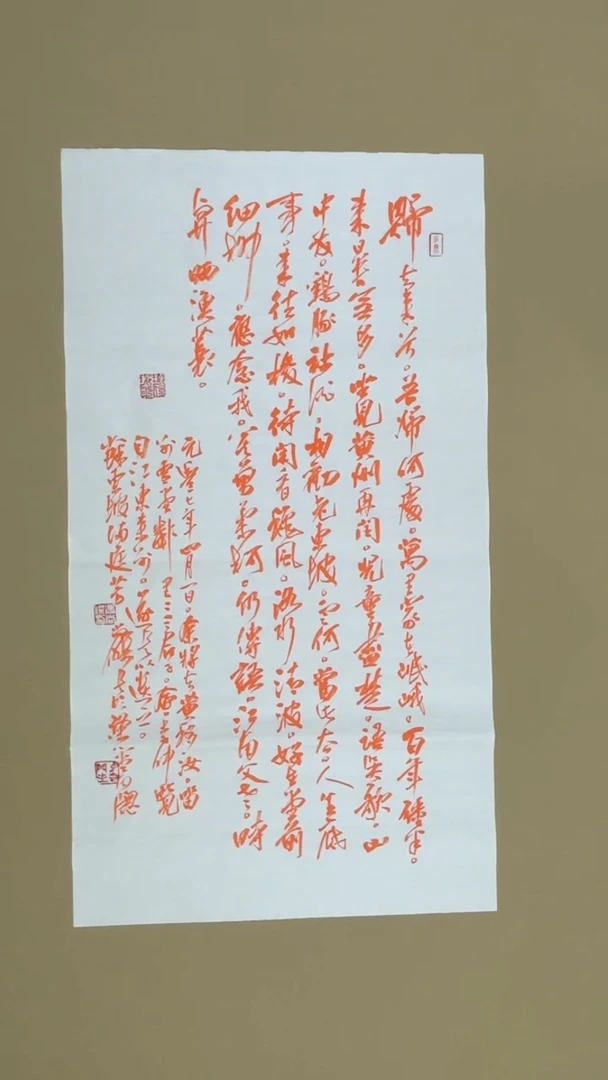 歸去來兮。吾歸何處。萬里家在岷峨。百年強半。
來日苦無多。坐見黃州再閏。兒童盡楚。語吳歌。山
中友。鷄豚社酒。相勸老東坡。云何。當此去。人生底
事。來往如梭。待閑看秋風。洛水清波。好在堂前
細柳。應念我。莫剪柔柯。仍傳語。江南父老。時
與晒漁蓑。
元豐七年四月一日。余將去黃移汝。留
別雪堂鄰里二三君子。會李仲覽
自江東來別。遂書以遺之。
蘇東坡滿庭芳